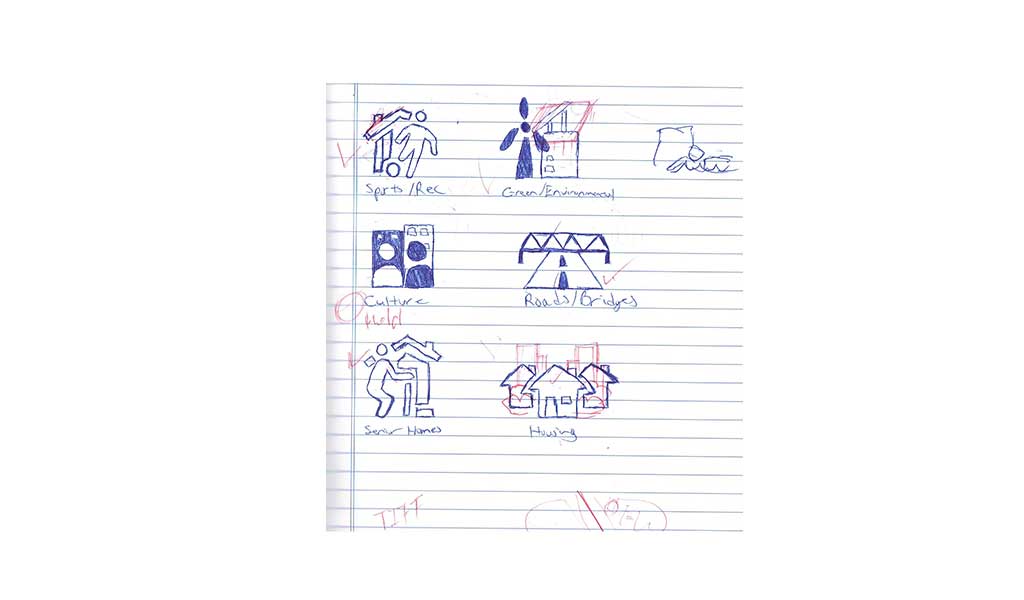 Sports/Rec
Green/Environmental
Culture
Roads/Bridges
Senior Homes
Housing
TIFF